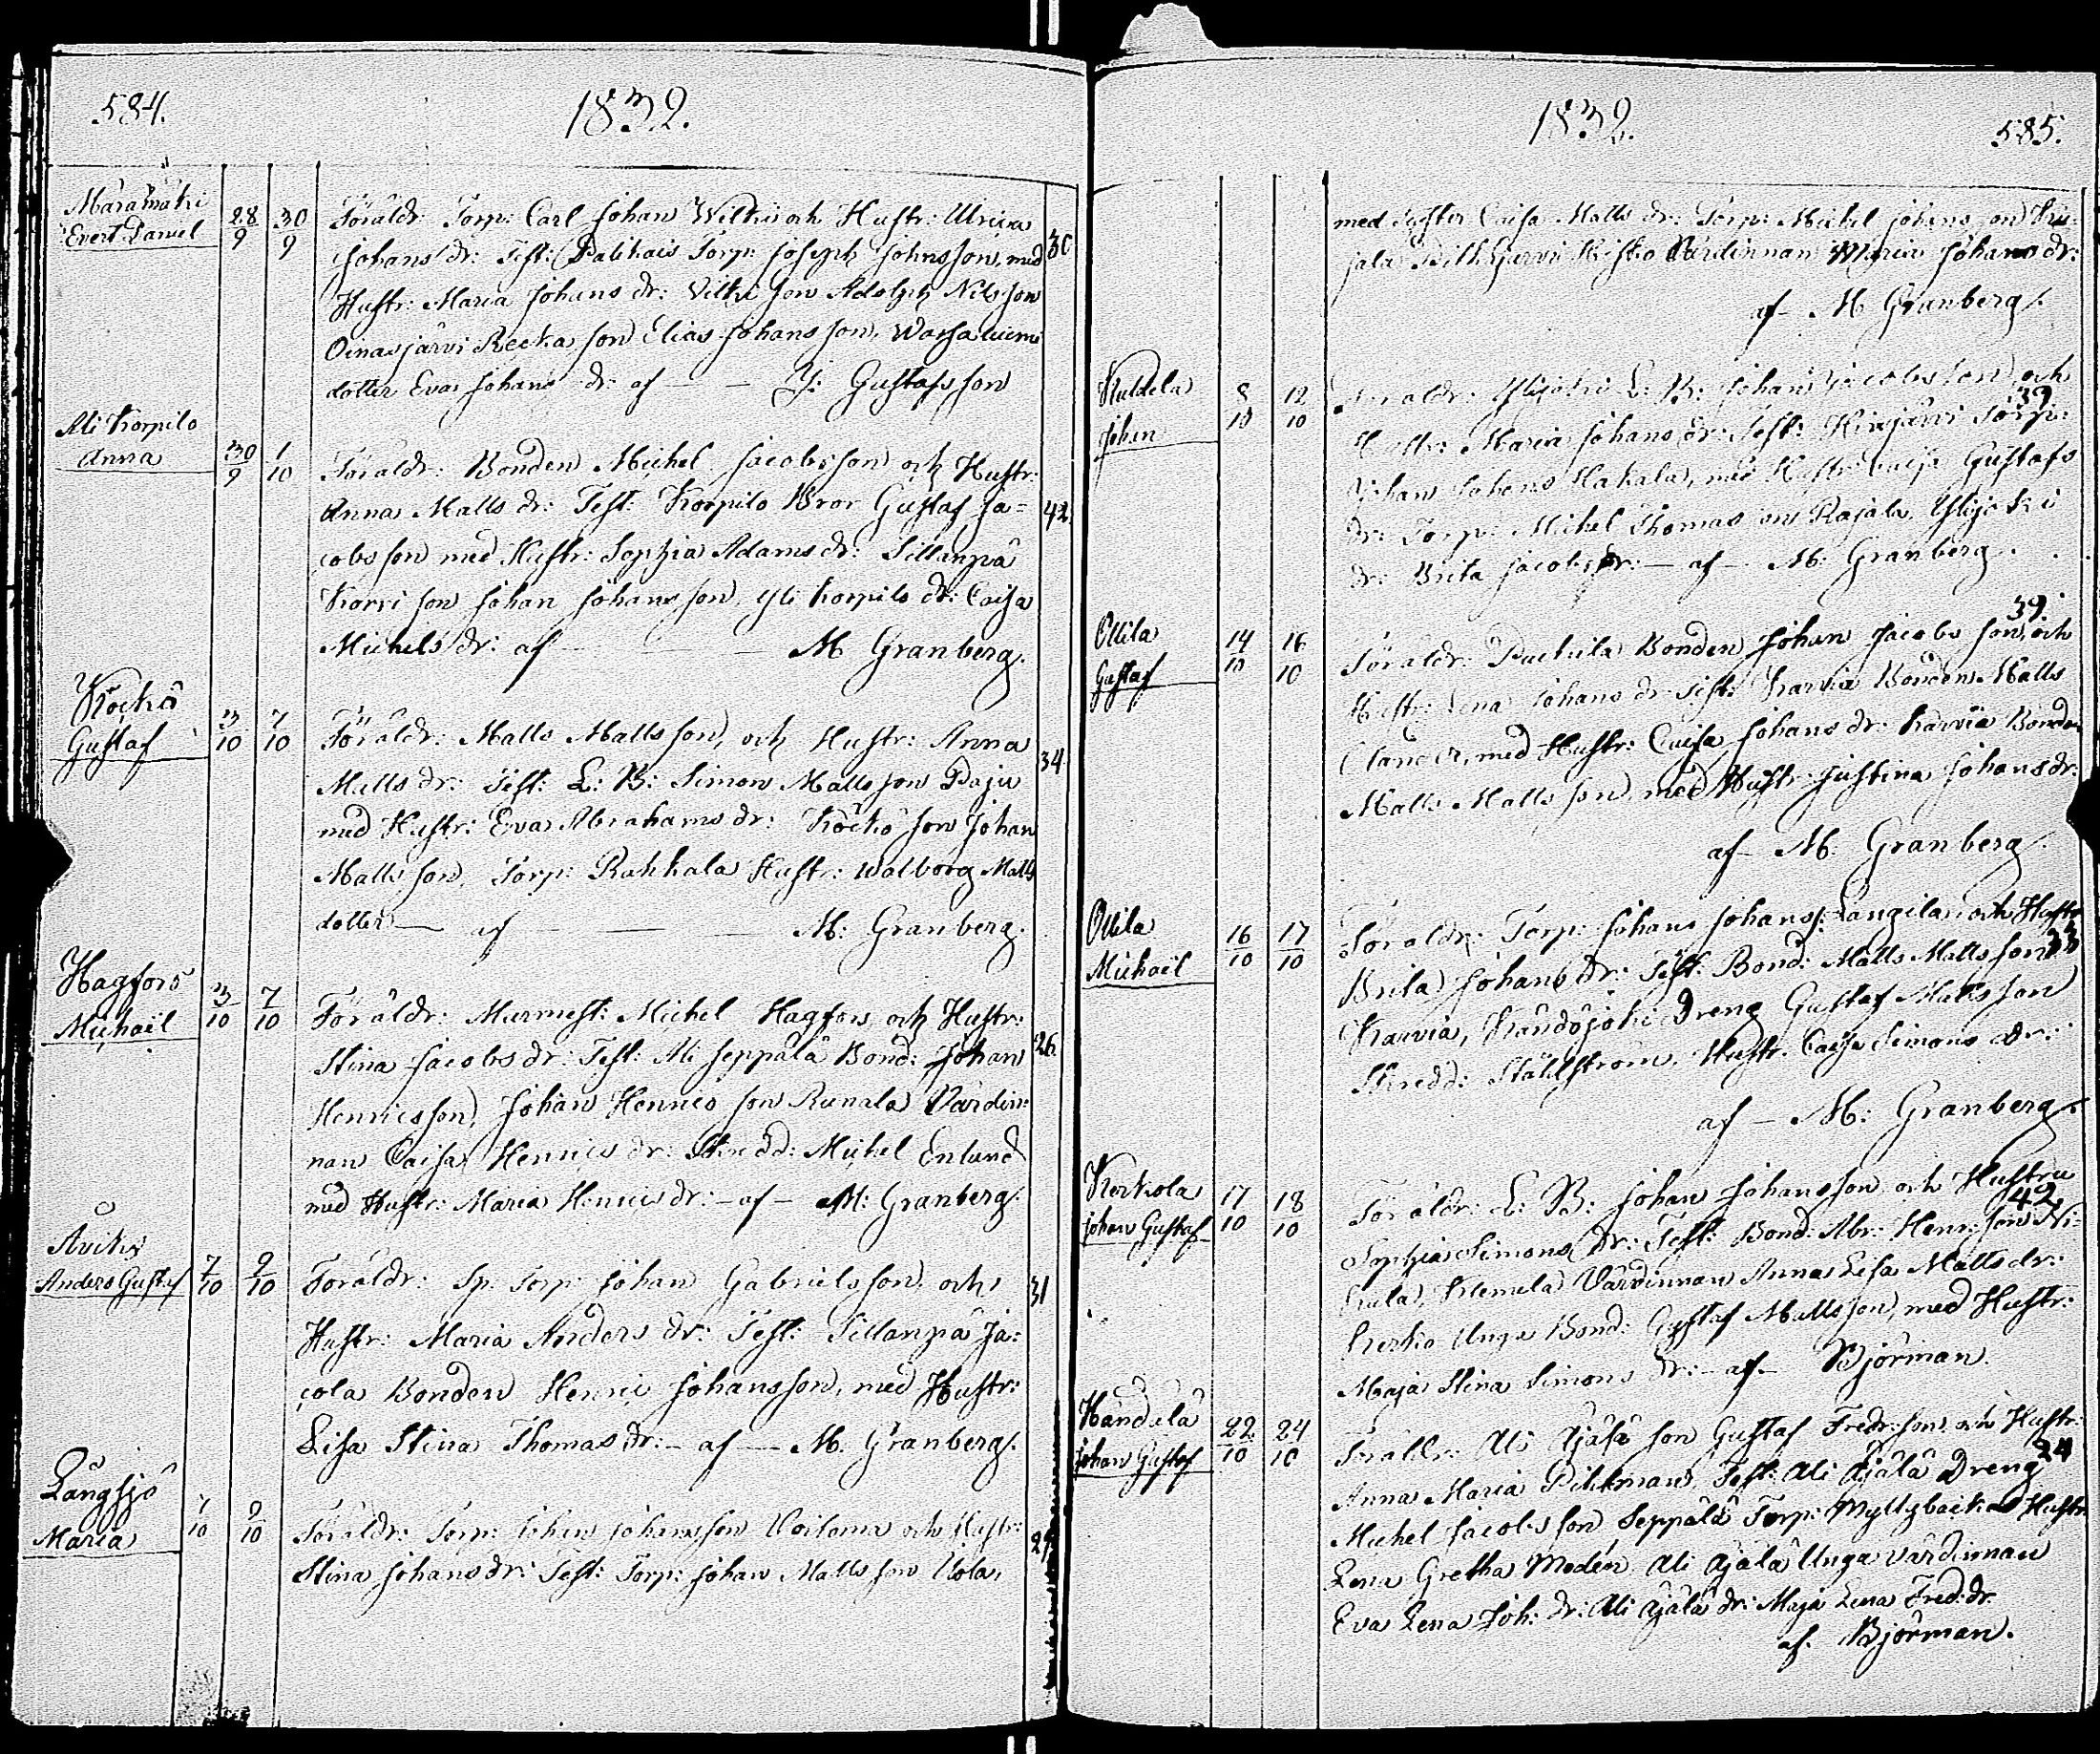 584.
1832.
Maramäki
Evert Daniel
28/9
30/9
Föräldr: Torp: Carl Johan Wilhri och Hustr: Ulrica
Johans dr: Test: Torp: Joseph Johnsson, med
30
Hustr: Maria Johans dr: son Adolph Nilsson
Oinasjärvi son Elias Johansson,
dotter Eva Johans dr: af — — Gustafsson
Ali Korpilo
Anna
30/9
1/10
Föräldr: Bonden Michel Jacobsson och Hustr:
Anna Matts dr: Test: Korpilo Bror Gustaf Ja=
42.
cobsson med Hustr: Sophia Adams dr: Sillanpä
son Johan Johansson, Yli Korpilo dr: Caisa
Michels dr: af — — M Granberg.
Köckö
Gustaf
3/10
7/10
Föräldr: Matts Mattsson, och Hustr: Anna
34
Matts dr: Test: L: B: Simon Mattsson Paju
med Hustr: Eva Abrahams dr: Köckö son Johan
Mattsson, Torp: Rahkala Hustr: Walborg Matts
dotter — af — — M: Granberg.
Hagfors
Michaël
3/10
7/10
Föräldr: Murmest: Michel Hagfors, och Hustr:
Stina Jacobs dr: Test: Ali Seppälä Bond: Johan
26.
Henricsson, Johan Henrics son Värdin:
nan Caisa Henrics dr: Skredd: Michel Enlund
med Hustr: Maria Henrics dr: — af — M: Granberg.
Anders Gustaf
7/10
9/10
Föräldr: Sp. Torp: Johan Gabrielsson, och
31
Hustr: Maria Anders dr: Test: Sillanpä Ja:
cola Bonden Henric Johansson, med Hustr:
Lisa Stina Thomas dr: — af — M. Granberg.
Långsjö
Maria
9/10
Föräldr: Torp: Johan Johansson och Hustr:
Stina Johans dr: Test: Torp: Johan Matts son
1832.
585.
med Syster Caisa Matts dr: Torp: Michel Johans son
Värdinnan Maria Johans dr:
af — M Granberg.
Johan
8/10
12/10
Föräldr: Ylijoki L: B: Johan Jacobsson, och
39
Hustr: Maria Johans dr: Test: Torp:
Johan Johans Hakala, med Hustr: Caisa Gustafs
dr: Torp: Michel Thomas son Rajala, Ylijoki
dr: Brita Jacobs dr: — af — M: Granberg.
Ollila
Gustaf
14/10
16/10
39.
Föräldr: Bonden Johan Jacobs son, och
Hustr: Lena Johans dr: Test: Karvia Bonden Matts
med Hustr: Caisa Johans dr: Karvia Bonden
Matts Mattsson, med Hustr: Justina Johans dr:
af — M: Granberg.
Ollila
Michaël
16/10
17/10
Föräldr: Torp: Johan Johans: Långila och Hustr
33
Brita Johans dr: Test: Bond: Matts Mattsson
Karvia, Dreng Gustaf Mattsson
Skredd: Stålström, Hustr. Caisa Simons dr:
af — M: Granberg.
Kerkola
Johan Gustaf
17/10
18/10
Föräldr: L: B: Johan Johansson och Hustru
42
Sophia Simons dr: Test: Bond: Abr: Henr: son
Värdinnan Anna Lisa Matts dr:
Unga Bond: Gustaf Mattsson, med Hustr:
Maja Stina Simons dr: — af — Björman.
Händälä
Johan Gustaf
22/10
24/10
Föräldr: Ali Äjälä son Gustaf Fredr: son och Hustr:
24
Anna Maria Pihlman, Test: Ali Äjälä Dreng
Michel Jacobsson Seppälä Torp: Myllybacka Hustr:
Lena Gretha Modén Ali Äjälä Unga värdinnan
Eva Lena Joh: dr: Ali Äjälä dr: Maja Lena Fred: dr.
af. Björman.